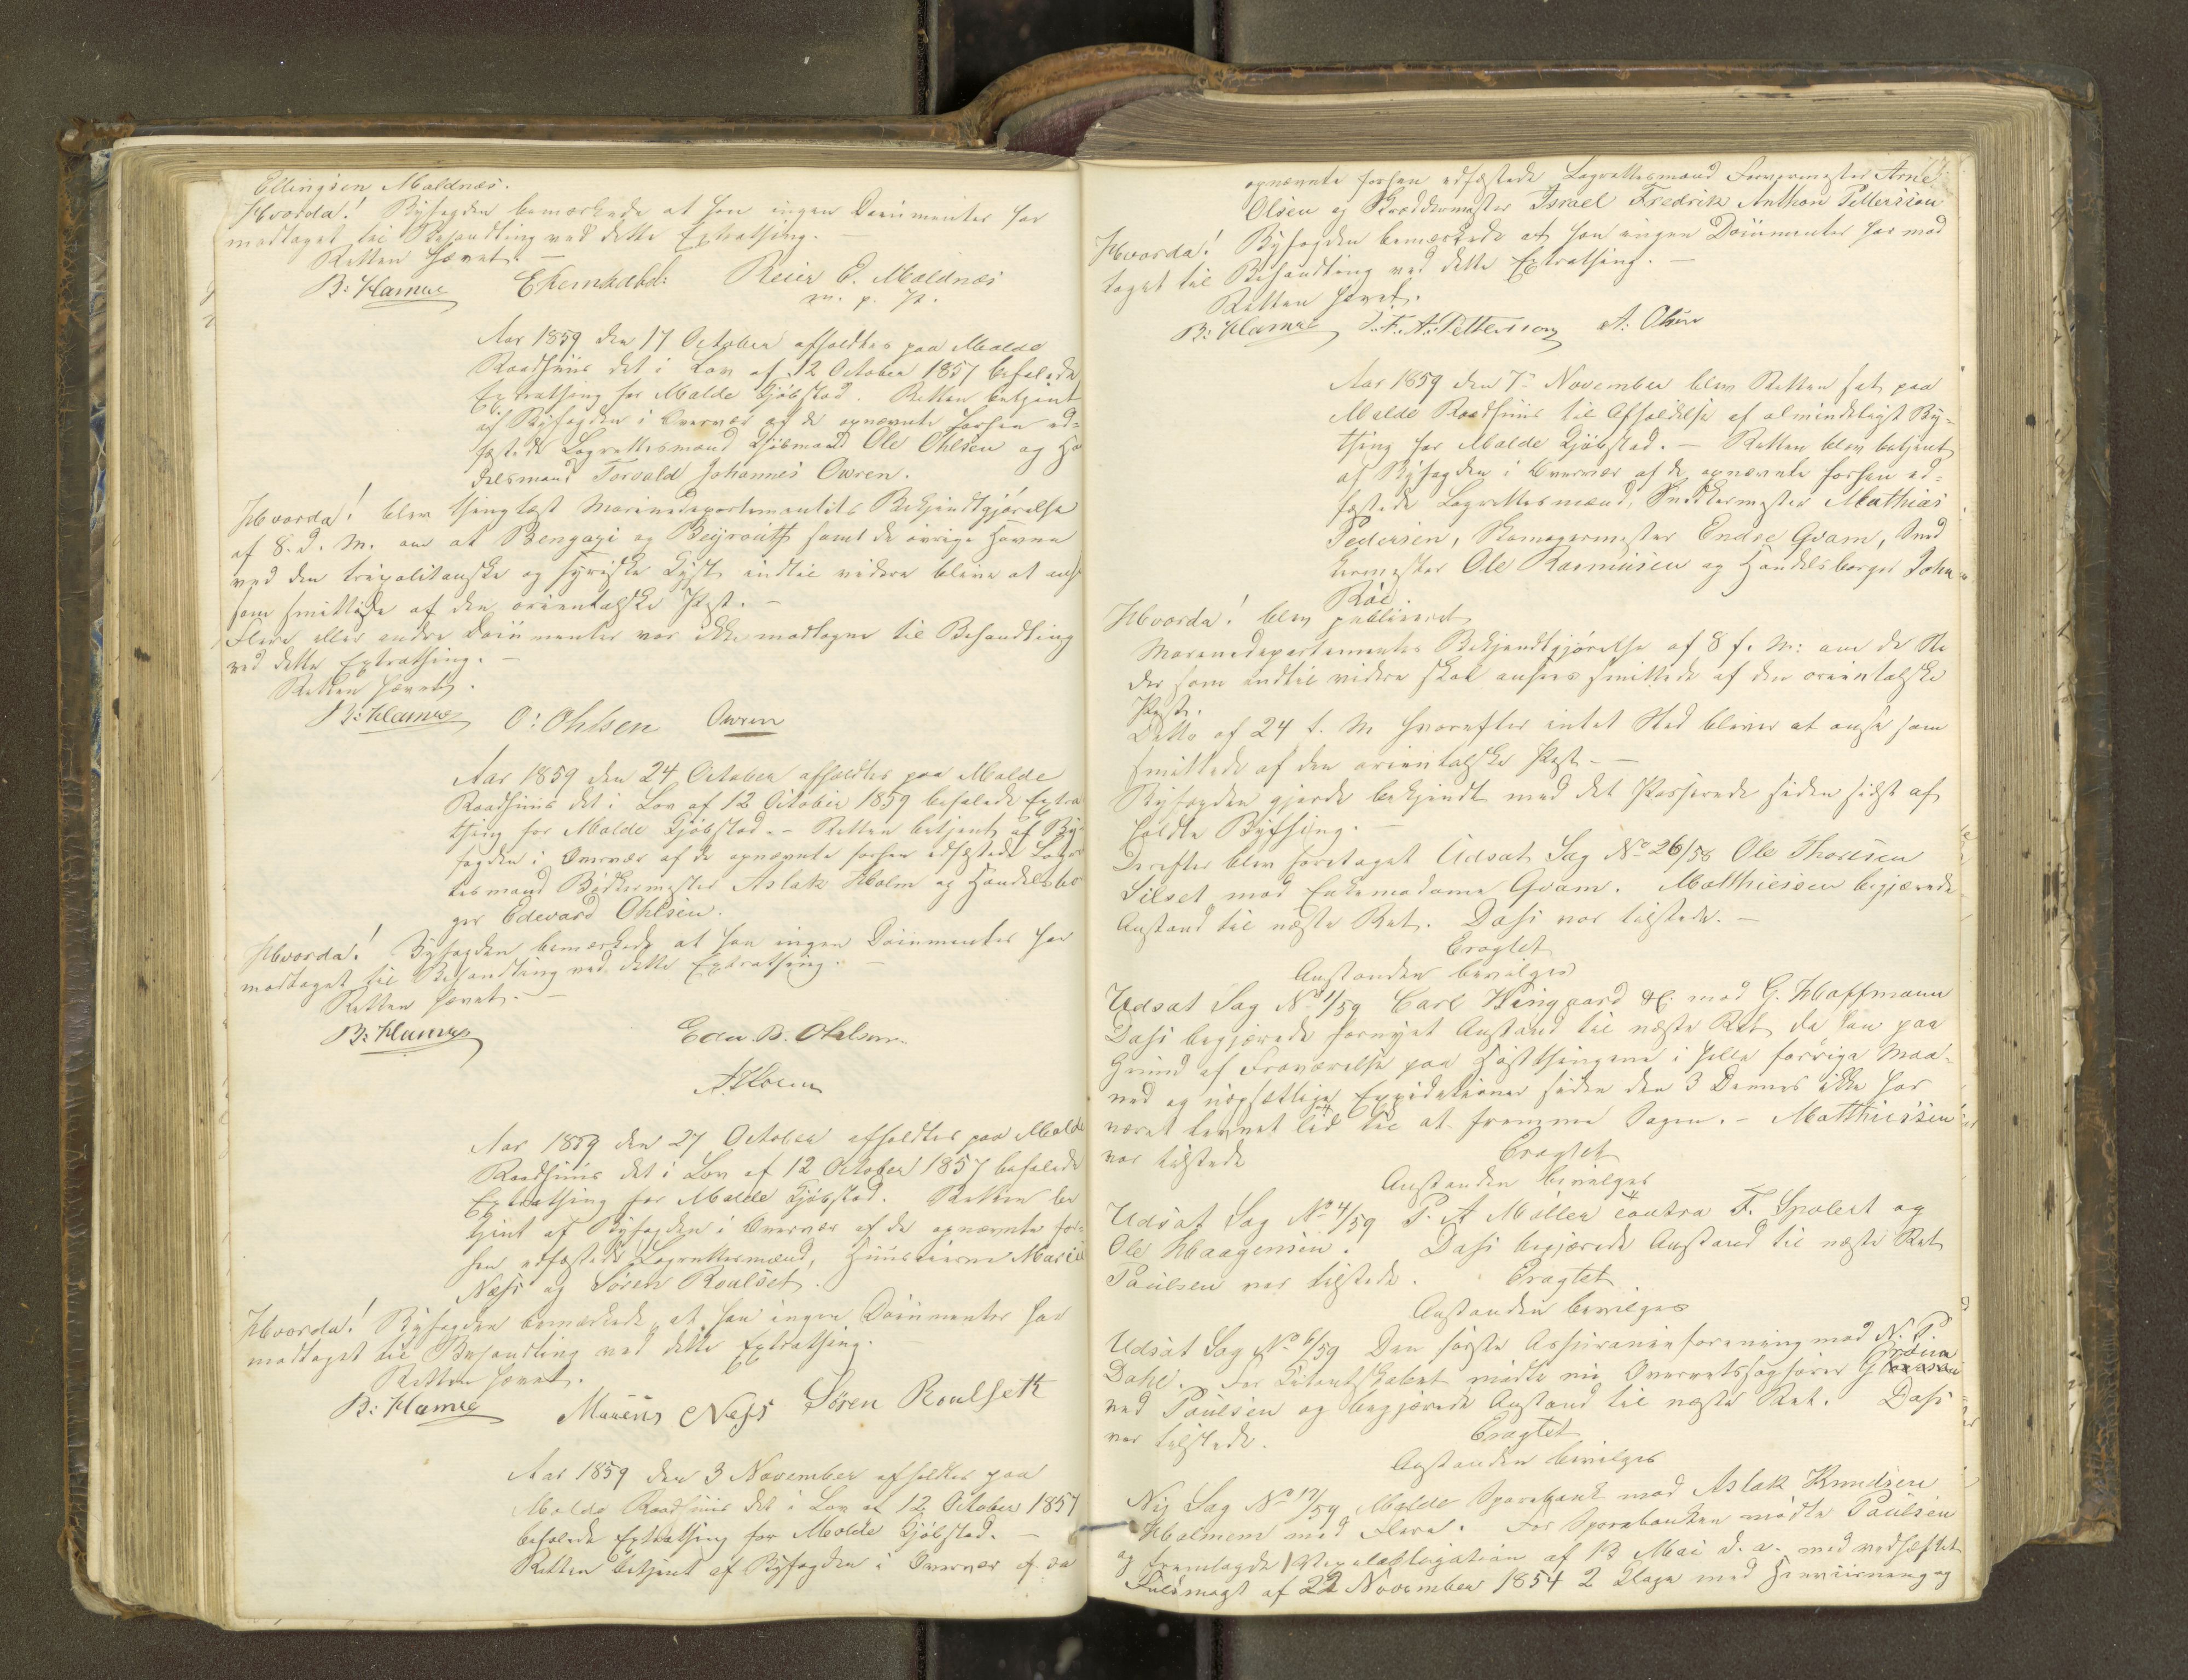 Ellingsen Moldnæs.
Hvorda! Byfogden bemærkede at han ingen Documenter har
modtaget til Behandling ved dette Extrathing. –
Retten hævet. –
B: Hamre Reier E. Moldnæs
m. p. P.
Aar 1859 den 17 October afholdtes paa Molde
Raadhuus det i Lov af 12 October 1857 befalede
Extrathing for Molde Kjøbstad. Retten betjent
af Byfogden i Overvær af de opnævnte forhen ed=
fæstede Lagrettesmænd Kjøbmand Ole Ohlsen og Han
delsmand Torvald Johannes Owren.
Hvorda! blev thinglæst Marinedepartementets Bekjendtgjørelse
af 8. d. M. om at Bengazi og Beyrouth samt de øvrige Havne
ved den tripolitanske og syriske Kyst indtil videre blive at anse
som smittede af den orientalske Pest. –
Flere eller andre Documenter var ikke modtagne til Behandling
ved dette Extrathing. –
Retten hævet.
B: Hamre O: Ohlsen Owren
Aar 1859 den 24 October afholdtes paa Molde
Raadhuus det i Lov af 12 October 1859 befalede Extra
thing for Molde Kjøbstad. – Retten betjent af By=
fogden i Overvær af de opnævnte forhen edfæstede Lagret
tesmænd Bødkermester Aslak Holm og Handelsbor
ger Edevard Ohlsen.
Hvorda! Byfogden bemærkede at han ingen Documenter har
modtaget til Behandling ved dette Extrathing. –
Retten hævet. –
B: Hamre Edw. B. Ohlsen
A. Holm
Aar 1859 den 27 October afholdtes paa Molde
Raadhuus det i Lov af 12 October 1857 befalede
Extrathing for Molde Kjøbstad. Retten be
tjent af Byfogden i Overvær af de opnævnte for=
hen edfæstede Lagrettesmænd,
Næss og Søren Roalset.
Hvorda! Byfogden bemærkede at han ingen Documenter har
modtaget til Behandling ved dette Extrathing.
Retten hævet.
B: Hamre Næss Søren Roulseth
Aar 1859 den 3 November afholdtes paa
Molde Raadhuus det i Lov af 12 October 1857
befalede Extrathing for Molde Kjøbstad. –
Retten betjent af Byfogden i Overvær af de
opnævnte forhen edfæstede Lagrettesmænd Farvermester Arne
Olsen og Skræddermester Israel Fredrik Anthon Pettersson
Hvorda! Byfogden bemærkede at han ingen Documenter har mod
taget til Behandling ved dette Extrathing. –
Retten hævet.
B: Hamre I. F. A. Pettersson A: Olsen
Aar 1859 den 7 November blev Retten sat paa
Molde Raadhuus til Afholdelse af almindeligt By=
thing for Molde Kjøbstad. – Retten blev betjent
af Byfogden i Overvær af de opnævnte forhen ed=
fæstede Lagrettesmænd, Snedkermester Mathias
Pedersen, Skomagermester Endre Gvam, Sned
kermester Ole Rasmusen og Handelsborger John
Röe.
Hvorda! blev publiceret
Marinedepartementets Bekjendtgjørelse af 8 f. M: om de Ste
der som indtil videre skal ansees smittede af den orientalske
Pest.
Ditto af 24 f. M hvorefter intet Sted bliver at anse som
smittede af den orientalske Pest. –
Byfogden gjorde bekjendt med det Passerede siden sidst af
holdte Bything. –
Derefter blev foretaget Udsat Sag No 26/58 Ole Thoresen
Silset mod Enkemadame Gvam. Matthiessen begjærede
Anstand til næste Ret. Dass var tilstede. –
Eragtet
Anstanden bevilges
Udsat Sag No 1/59 Carl Wingaard &c. mod G. Hoffmann
Dass begjærede fornyet Anstand til næste Ret da han paa
Grund af Fraværelse paa Høstthingene i hele forrige Maa=
ned og uopsættelige Expeditioner siden den 3 Dennes ikke har
været levnet Tid til at fremme Sagen. – Matthiessen
var tilstede
Eragtet
Anstanden bevilges
Udsat Sag No 4/59 P. A Möller contra F. Spolert og
Ole Haagensen. Dass begjærede Anstand til næste Ret
Paulsen var tilstede. Eragtet
Anstanden bevilges
Udsat Sag No 6/59 Den første Assuranceforening mod N. P.
Dahl. For Citantskabet mødte nu Overretssagfører
ved Paulsen og begjærede Anstand til næste Ret. Dass
var tilstede. Eragtet
Anstanden bevilges
Ny Sag No 17/59 Molde Sparebank mod Aslak Knudsen
Holmem med Flere. For Sparebanken mødte Paulsen
og fremlagde 1 Vexelobligation af 13 Mai d. a. med vedhæftet
Fuldmagt af 22 November 1854 2 Klage med Henviisning og